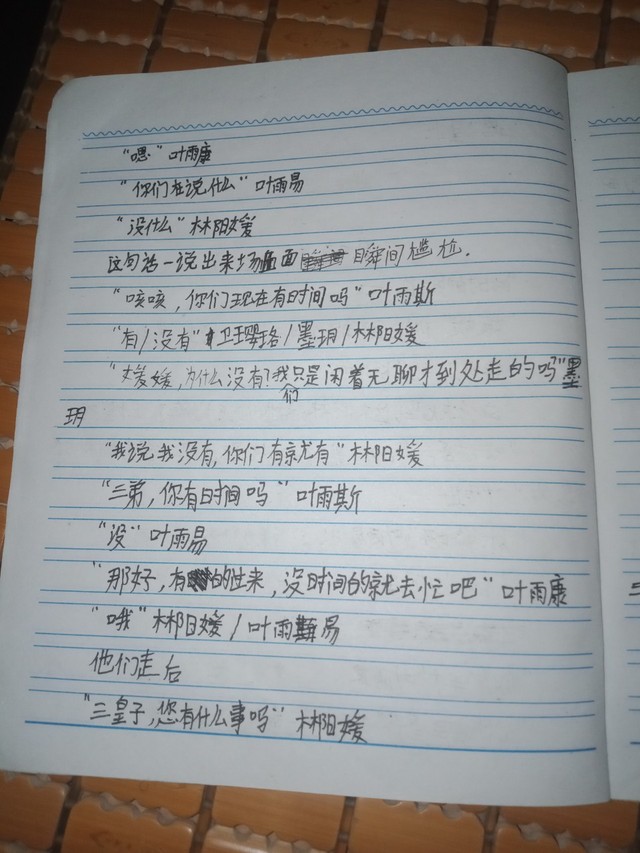 “嗯”叶雨康
“你们在说什么”叶雨易
“没什么”林阳媛
这句话一说出来场面瞬间尴尬.
“咳咳，你们现在有时间吗”叶雨斯
“有/没有”卫璎珞/墨玥/林阳媛
“媛媛，为什么没有我们只是闲着无聊才到处走的吗”墨
玥
“我说我没有，你们有就有”林阳媛
“三弟，你有时间吗”叶雨斯
“没”叶雨易
“那好，有的过来，没时间的就去忙吧”叶雨康
“哦”林阳媛/叶雨易
他们走后
“三皇子，您有什么事吗”林阳媛